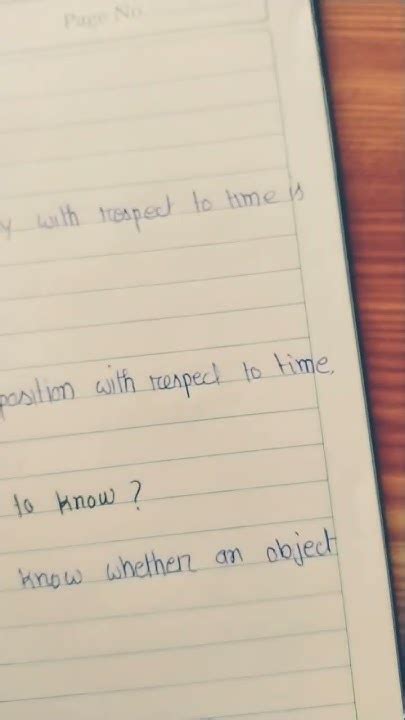 Page No
y with respect to time is
position with respect to time.
to know?
know whether an object